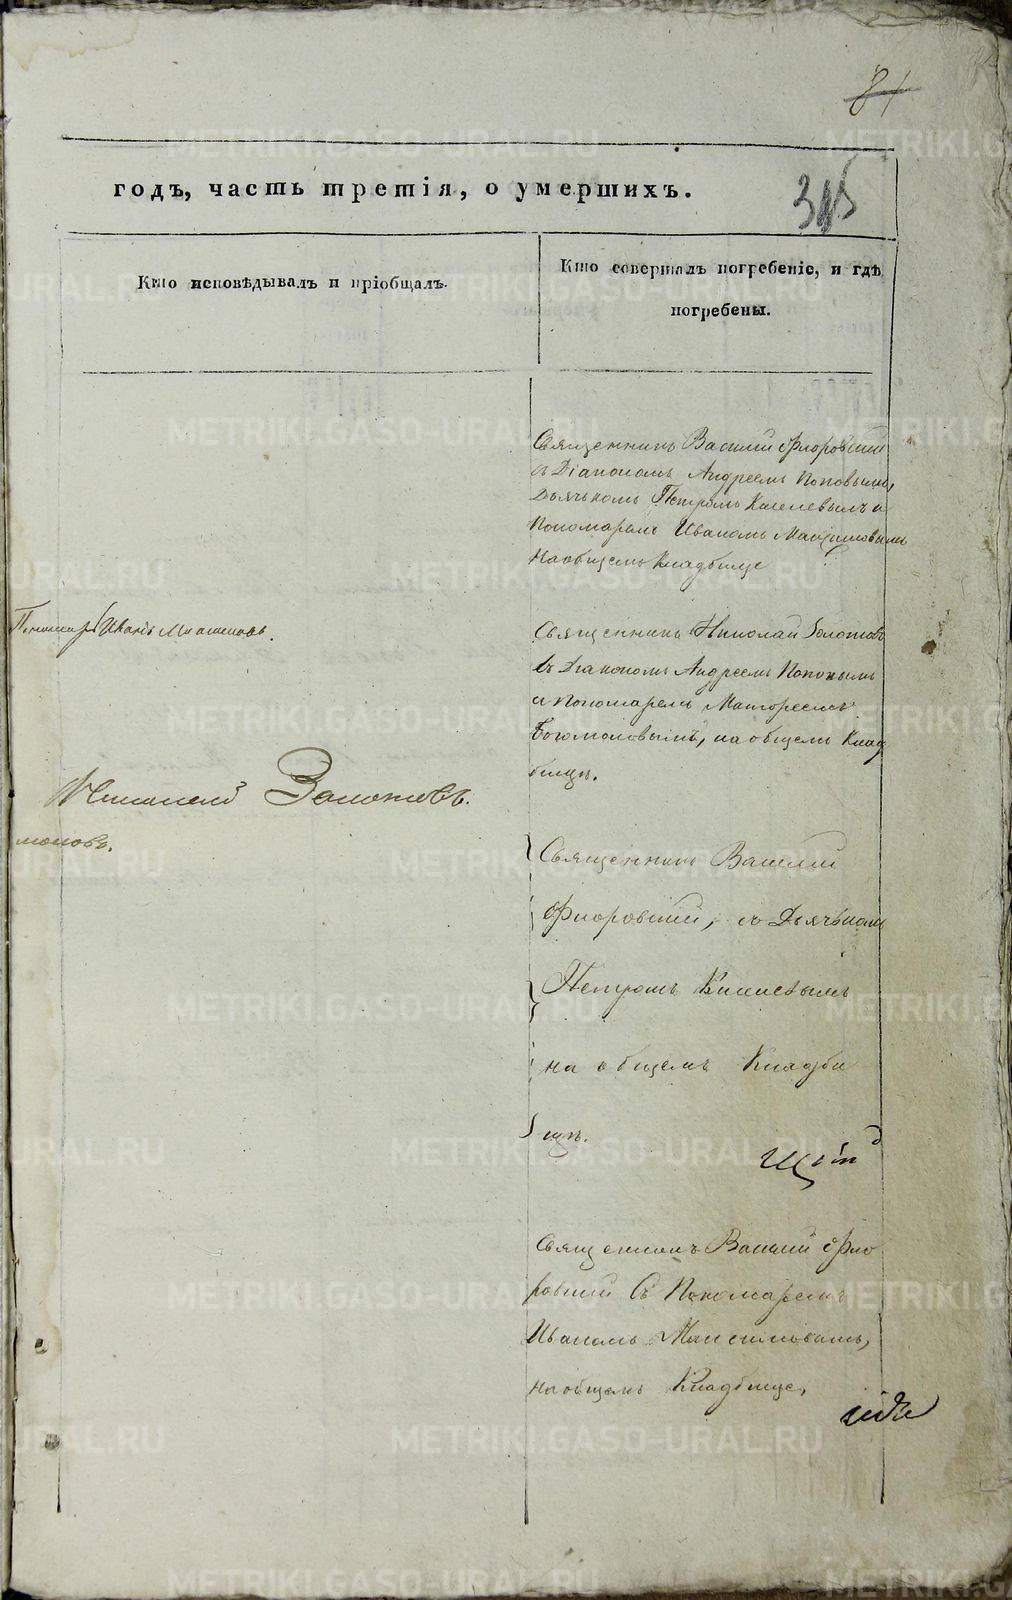 81
годъ, часть третія, о умершихъ.
315
Кто исповѣдывалъ и пріобщалъ.
Кто совершалъ погребеніе, и гдѣ
погребены.
Священникъ Василій Флоровскій
съ Діакономъ Андреемъ Поповымъ,
Дьячькомъ Петромъ Киселевымъ и
Пономаремъ Иваномъ Максимовымъ
на общемъ Кладбище
Пономарь Иванъ
Священникъ Николай Золотовъ
съ Діакономъ Андреемъ Поповымъ
и Пономаремъ Матфеемъ
Богомоловымъ, на общемъ Клад
бищѣ.
Николай Золотовъ.
моновъ.
Священникъ Василій
Флоровскій, съ Дьячькомъ
Петромъ Киселевымъ
на общемъ Кладби
щѣ.
Священникъ Василій Фло
ровскій Съ Пономаремъ
Иваномъ Максимовымъ,
на общемъ Кладбище,
METRIKI.GASO-URAL.RU